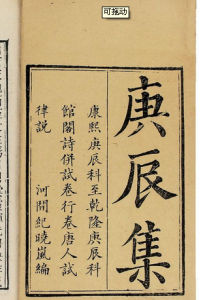 可拖动
庚辰集
康熙庚辰科至乾隆庚辰科
館閣詩併試卷行卷唐人試
律説
河間紀曉嵐編